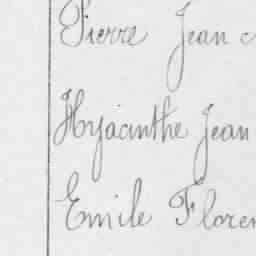 Pierre Jean
Hyacinthe Jean
Emile